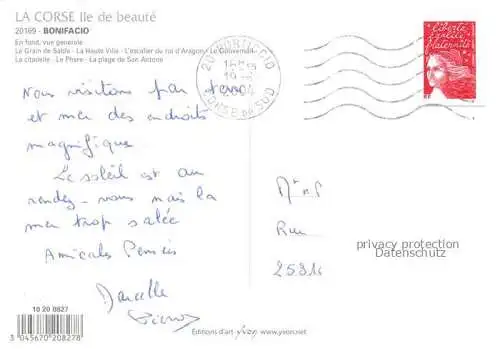 LA CORSE Ile de beauté
20169 - BONIFACIO
En fond, vue generale
Le Grain de Sable - La Haute Ville - L'escalier du roi d'Aragon - Le Gouvernail
La citadelle - Le Phare - La plage de San Antone
20 PORTICCIO
2004
CORSE DU SUD
Liberté
égalité
fraternité
Nous visitons par terre
et mer des endroits
magnifique
Le soleil est au
rendez-vous mais la
mer trop salée
Amicales Pensées
Marcelle
Pierre
Mr et
Rue
privacy protection
Datenschutz
25316
10 20 0827
3 045670 208278
Editions d'art yvon www.yvon.net